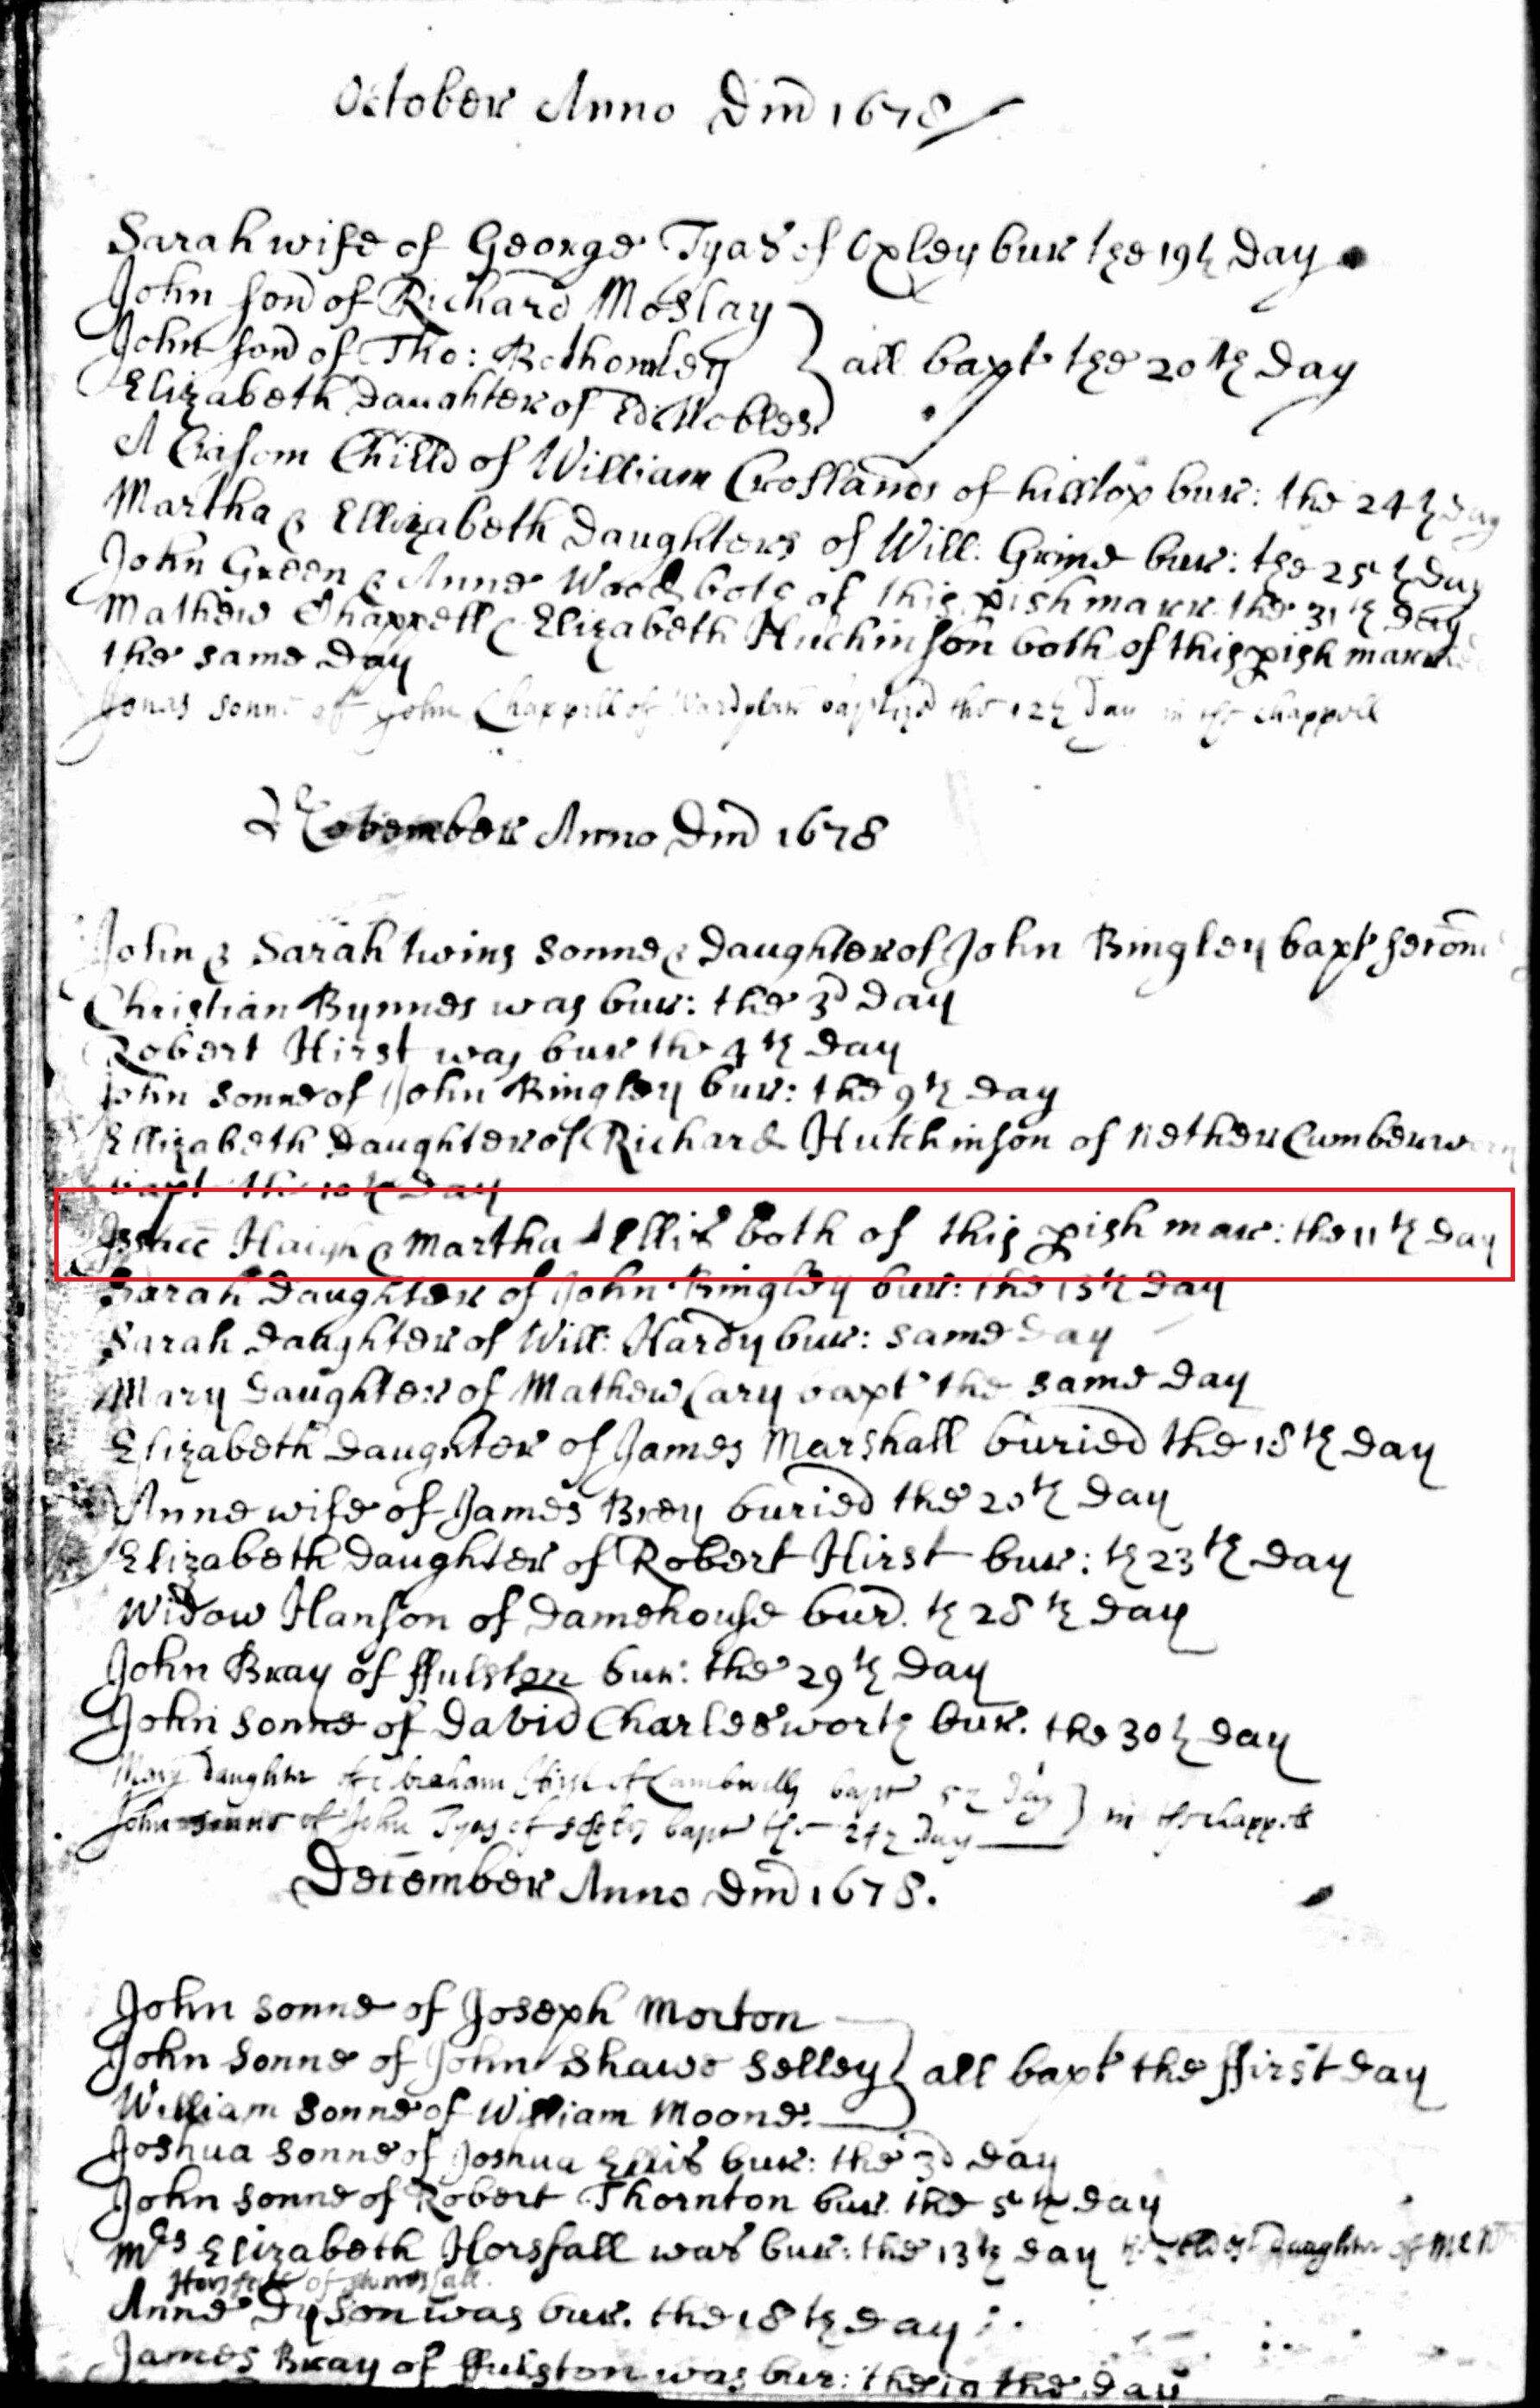 October Anno Dm̄ 1678
Sarah wife of George Tyas of Oxley bur the 19th day
John son̄ of Richard Moslay
John son̄ of Tho: Bothomley } all bapt the 20th day
Elizabeth daughter of Ed: Nobles
A Crisom Chilld of William Croslands of hilltop bur: the 24th day
Martha & Ellizabeth daughters of Will: Grime bur: the 25th day
John Green & Anne Wood both of this pish marr the 31th day
Mathew Chappell & Elizabeth Huchinson both of this pish marr
the same day
Jonas sonne of John Chappell of baptized the 12th day in the chappell
November Anno Dm̄ 1678
John & Sarah twins sonne & daughter of John Bingley bapt secōnd
Christian Bynnes was bur: the 3d day
Robert Hirst was bur the 4th day
John sonne of John Bingley bur: the 9th day
Ellizabeth daughter of Richard Hutchinson of Nether Cumberw
bapt the 10th day
Isaac Haigh & Martha Ellis both of this pish mar: the 11th day
Sarah daughter of John Bingley bur: the 13th day
Sarah daughter of Will: Hardy bur: same day
Mary daughter of Mathew Cary bapt the same day
Elizabeth daughter of James Marshall buried the 18th day
Anne wife of James Brey buried the 20th day
Elizabeth daughter of Robert Hirst bur: th 23th day
Widow Hanson of damehouse burd. th 28th day
John Bray of ffulston bur: the 29th day
John sonne of David Charlesworth bur. the 30th day
Mary daughter of Abraham Hirst of bapt 5th day } in the chappell
John sonne of John Tyas of bapt the 24th day
December Anno Dm̄ 1678.
John sonne of Joseph Morton
John sonne of John Shawe Selley } all bapt the ffirst day
William sonne of William Moone.
Joshua sonne of Joshua Ellis bur: the 3d day
John sonne of Robert Thornton bur. the 5th day
Mrs Elizabeth Horsfall was bur: the 13th day the eldest daughter of Mr
Horsfall of
Anne Dyson was bur. the 18th day
James Bray of ffulston was bur: the 19 the day